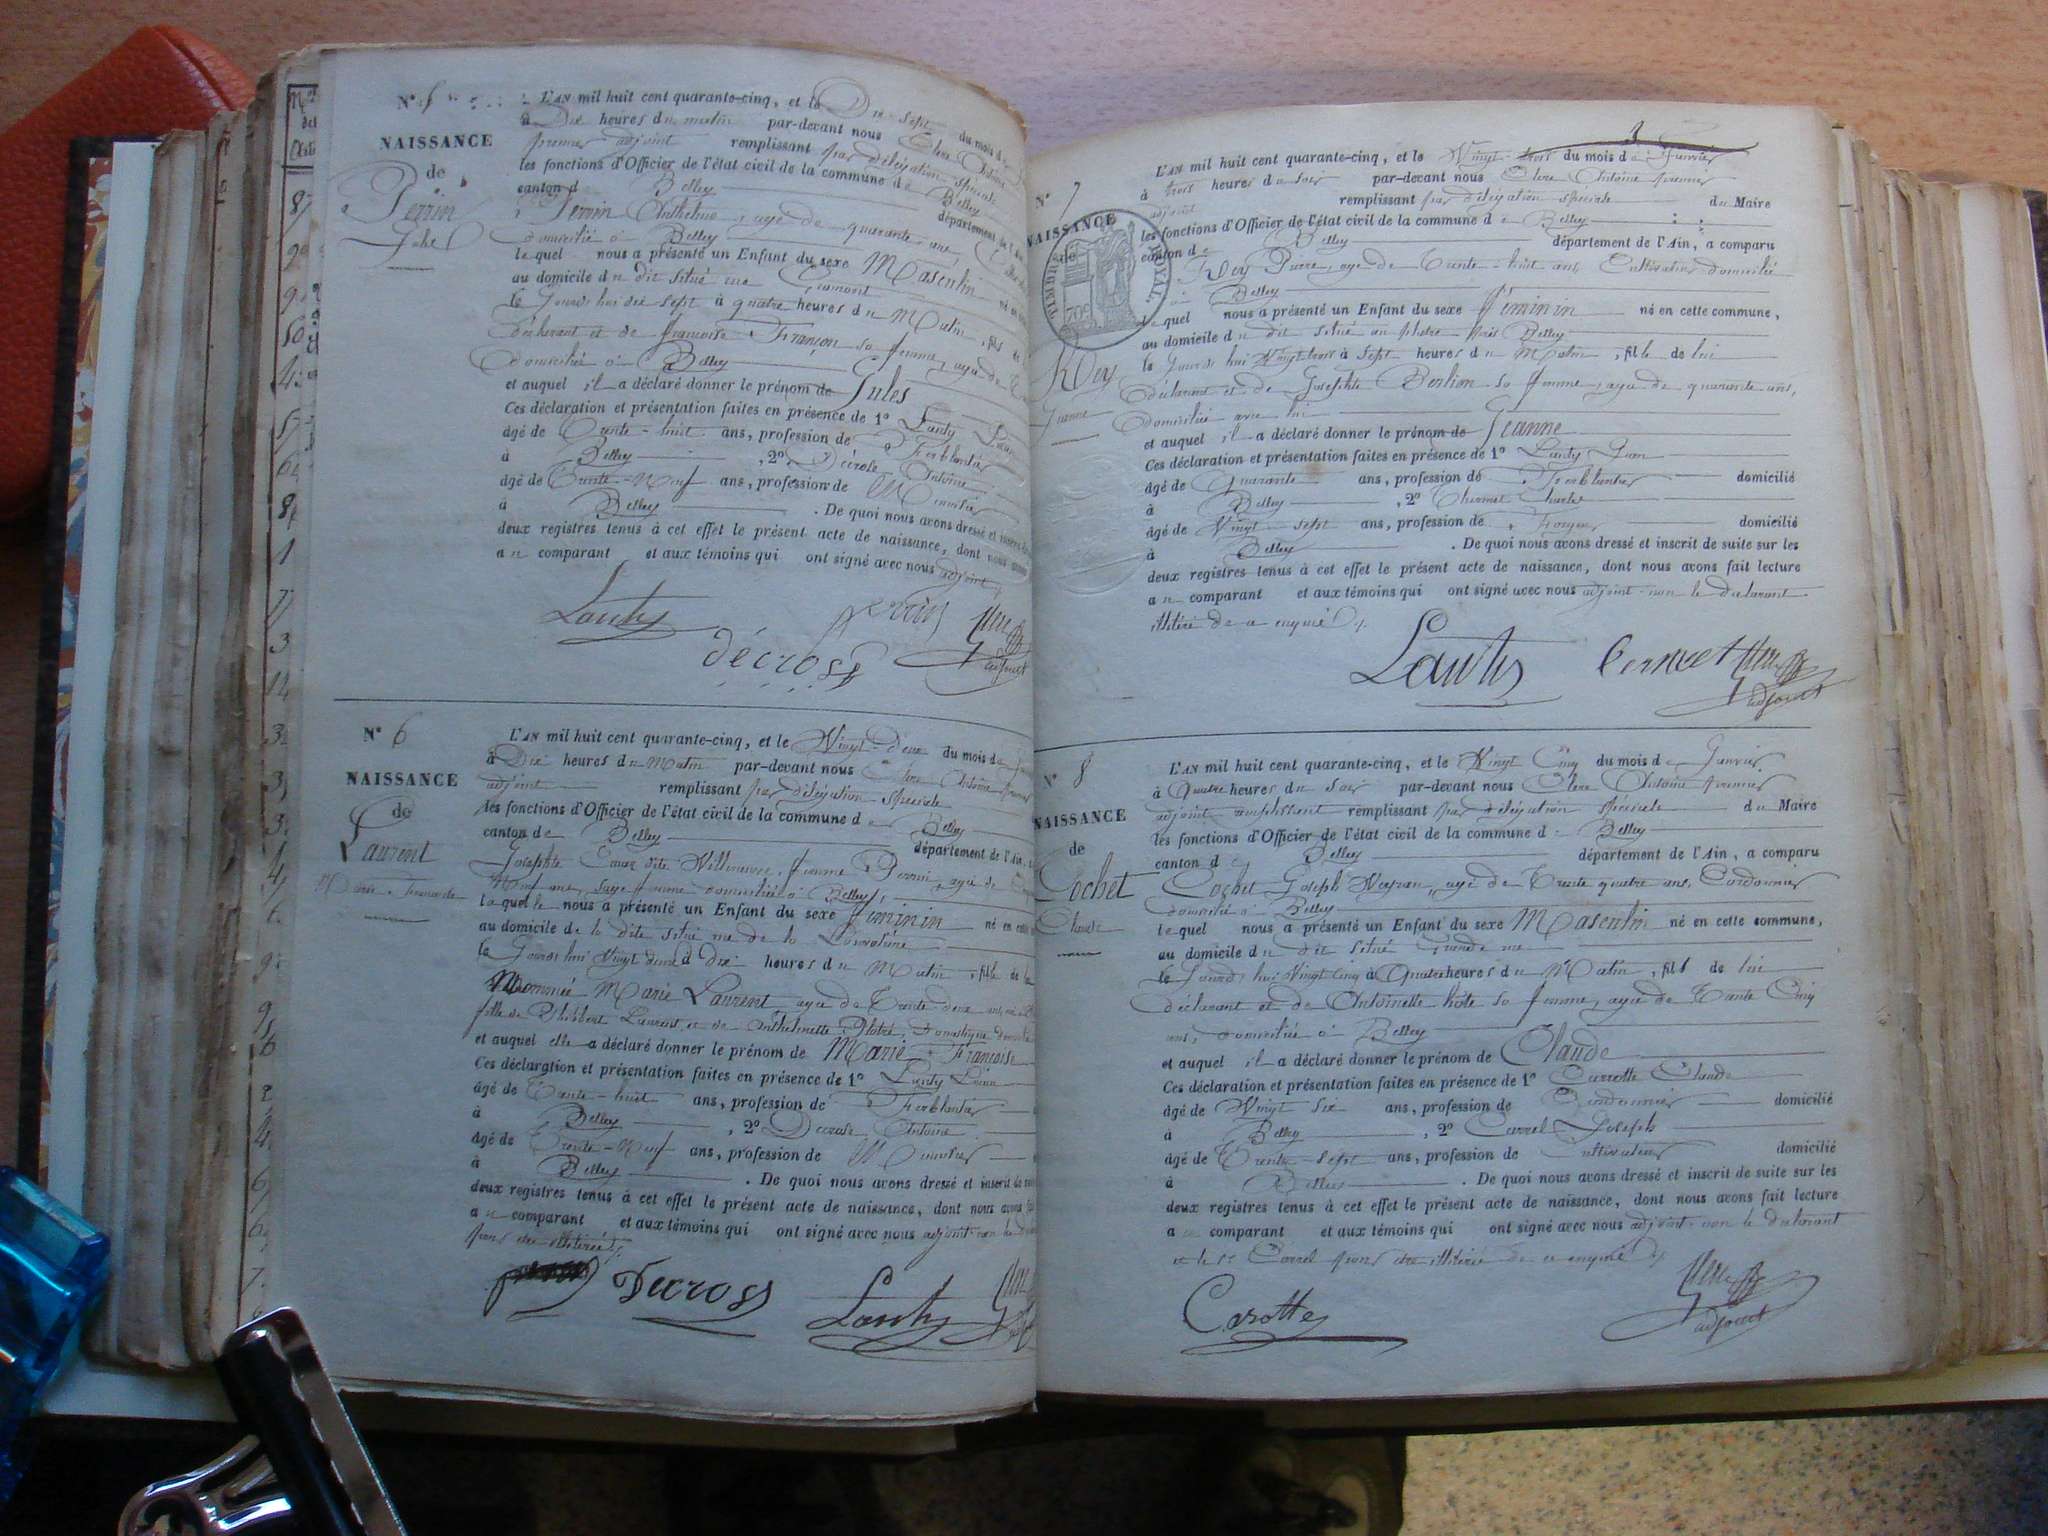 N°
L'AN mil huit cent quarante-cinq, et le Dix-sept du mois d
à Dix heures du matin par-devant nous
NAISSANCE
premier adjoint remplissant par délégation spéciale
de
les fonctions d'Officier de l'état civil de la commune de Belley
Perrin
canton de Belley département de l'
Jules
Perrin Anthelme, agé de quarante ans,
domicilié à Belley
lequel nous a présenté un Enfant du sexe Masculin né en
au domicile du dit situé rue
le Jourd'hui dix sept à quatre heures du Matin, fils de
déclarant et de françoise Françon sa femme, agée de
domiciliée à Belley
et auquel il a déclaré donner le prénom de Jules
Ces déclaration et présentation faites en présence de 1° Lauty
âgé de Trente-huit ans, profession de Ferblantier
à Belley, 2° Antoine
âgé de Trente-Neuf ans, profession de
à Belley. De quoi nous avons dressé et inscrit
deux registres tenus à cet effet le présent acte de naissance, dont nous avons
au comparant et aux témoins qui ont signé avec nous adjoint
Lauty perrin
décross adjoint
N° 6
L'AN mil huit cent quarante-cinq, et le Vingt-deux du mois de
à Dix heures du Matin par-devant nous Antoine premier
NAISSANCE
adjoint remplissant par délégation spéciale
de
les fonctions d'Officier de l'état civil de la commune de Belley
Laurent
canton de Belley département de l'Ain,
Marie Francoise
Josephte dite Villeneuve, femme Perrin, agée de
Neuf ans, sage femme domiciliée à Belley,
laquelle nous a présenté un Enfant du sexe féminin né en cette
au domicile de la dite situé rue de la
le Jourd'hui Vingt deux à dix heures du Matin, fille de la
Nommée Marie Laurent, agée de Trente deux ans,
fille de Philibert Laurent et de Anthelmette domestique
et auquel elle a déclaré donner le prénom de Marie Francoise
Ces déclaration et présentation faites en présence de 1° Lauty
âgé de Trente-huit ans, profession de Ferblantier
à Belley, 2° Antoine
âgé de Trente-Neuf ans, profession de
à Belley. De quoi nous avons dressé et inscrit de
deux registres tenus à cet effet le présent acte de naissance, dont nous avons
au comparant et aux témoins qui ont signé avec nous adjoint non la
Decross Lauty
3
N° 7
L'AN mil huit cent quarante-cinq, et le Vingt-trois du mois de Janvier
à trois heures du soir par-devant nous Antoine premier
NAISSANCE
adjoint remplissant par délégation spéciale du Maire
de
les fonctions d'Officier de l'état civil de la commune de Belley
TIMBRE ROYAL
70c
canton de Belley département de l'Ain, a comparu
Rey
Rey Pierre, agé de Trente-huit ans, Cultivateur domicilié
Jeanne
à Belley
lequel nous a présenté un Enfant du sexe féminin né en cette commune,
au domicile du dit situé près Belley
le Jourd'hui Vingt trois à sept heures du Matin, fille de lui
déclarant et de Josephte Berlion sa femme, agée de quarante ans,
domiciliée avec lui
et auquel il a déclaré donner le prénom de Jeanne
Ces déclaration et présentation faites en présence de 1° Lauty
âgé de Quarante ans, profession de Ferblantier domicilié
à Belley, 2° Charles
âgé de Vingt-sept ans, profession de domicilié
à Belley. De quoi nous avons dressé et inscrit de suite sur les
deux registres tenus à cet effet le présent acte de naissance, dont nous avons fait lecture
au comparant et aux témoins qui ont signé avec nous adjoint non le déclarant
illitéré de ce enquis
Lauty
adjoint
N° 8
L'AN mil huit cent quarante-cinq, et le Vingt Cinq du mois de Janvier
à Quatre heures du soir par-devant nous Antoine premier
NAISSANCE
adjoint remplissant par délégation spéciale du Maire
de
les fonctions d'Officier de l'état civil de la commune de Belley
Cochet
canton de Belley département de l'Ain, a comparu
Claude
Cochet Joseph agé de Trente quatre ans, Cordonnier
domicilié à Belley
lequel nous a présenté un Enfant du sexe Masculin né en cette commune,
au domicile du dit situé Grande rue
le Jourd'hui Vingt Cinq à Quatre heures du Matin, fils de lui
déclarant et de Antoinette sa femme, agée de Trente Cinq
ans, domiciliée à Belley
et auquel il a déclaré donner le prénom de Claude
Ces déclaration et présentation faites en présence de 1° Carrotte Claude
âgé de Vingt six ans, profession de Cordonnier domicilié
à Belley, 2° Carrel Joseph
âgé de Trente-sept ans, profession de Cultivateur domicilié
à Belley. De quoi nous avons dressé et inscrit de suite sur les
deux registres tenus à cet effet le présent acte de naissance, dont nous avons fait lecture
au comparant et aux témoins qui ont signé avec nous adjoint non le déclarant
et le Sr Carrel pour être illitérés de ce enquis
Carotte
adjoint